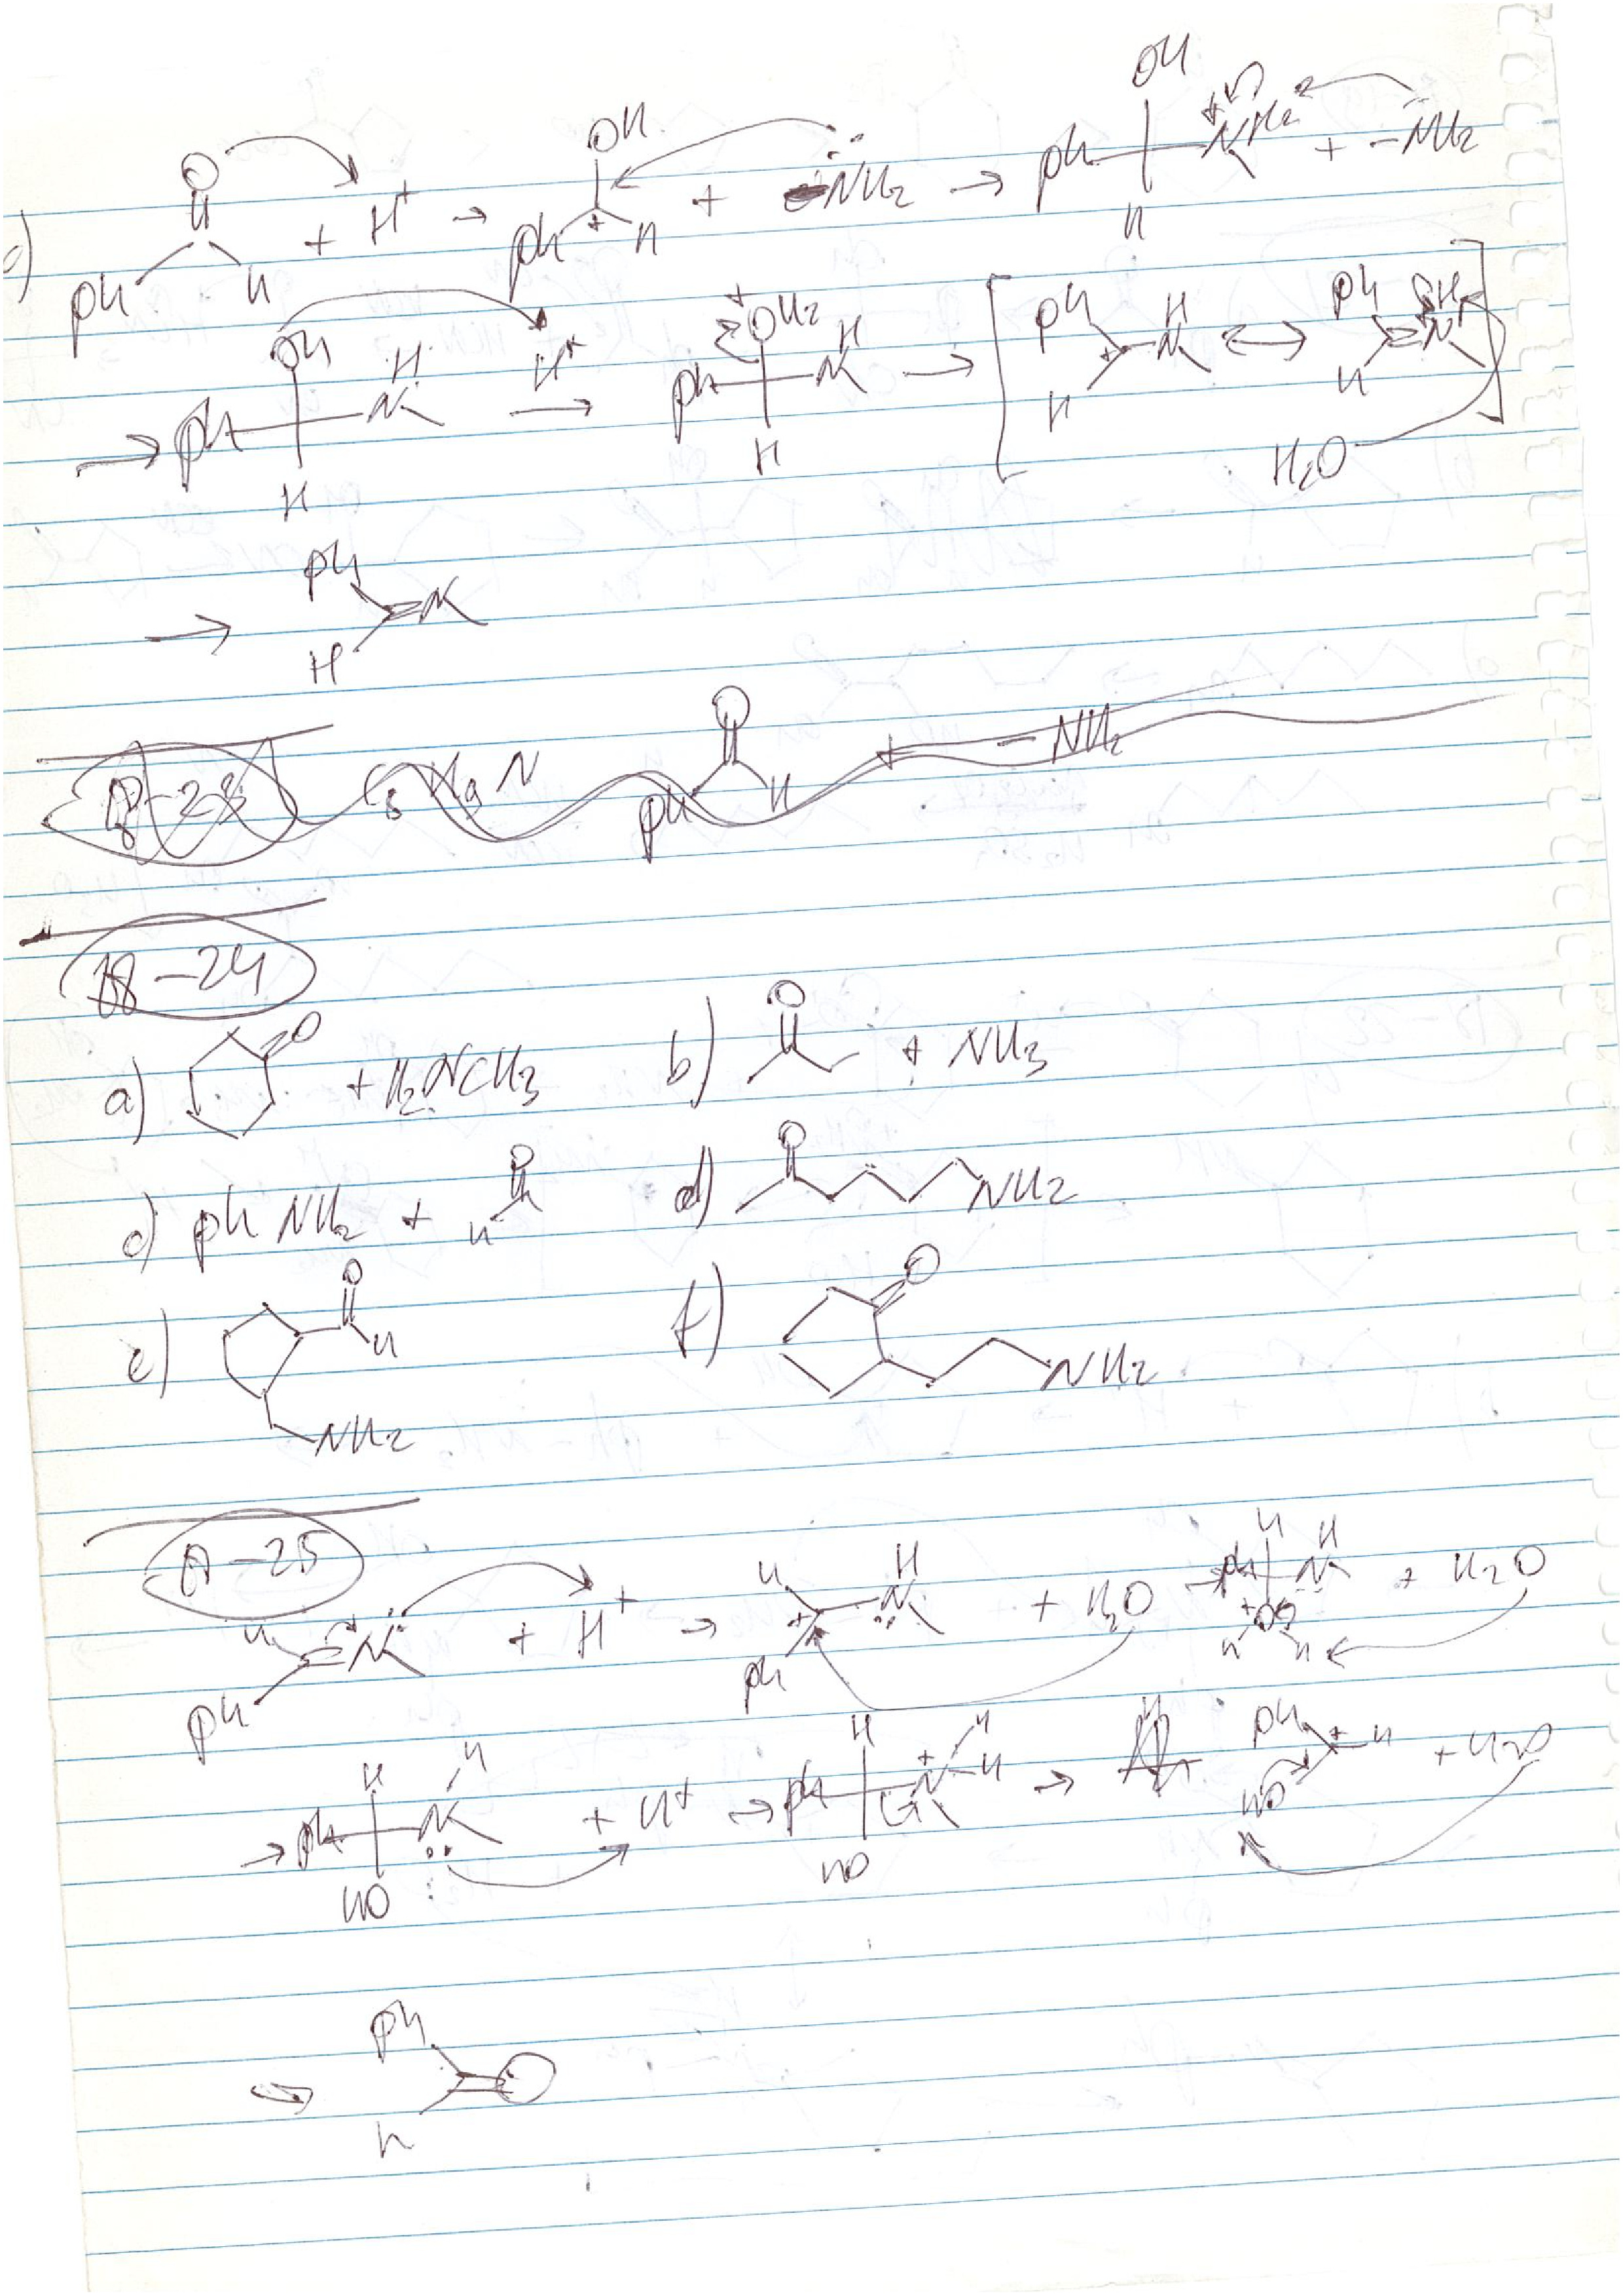 c) O Ph H + H⁺ → OH Ph + H + :NH₂ → OH Ph H + NH₂ + -NH₂
→ OH Ph H N H H⁺ → + OH₂ Ph H N H → [ Ph + H N H ↔ Ph H N ]
H₂O
→ Ph H N
8-23 C₈H₉N O Ph H + -NH₂
18-24
a) O + H₂NCH₃ b) O + NH₃
c) Ph NH₂ + O H d) O NH₂
e) O H NH₂ f) O NH₂
-25
H Ph N + H⁺ → H + Ph N H + H₂O → H Ph N H + O H H + H₂O
→ H Ph HO N H + H⁺ → H Ph HO + N H H → Ph + H HO + H₂O
→ Ph H O